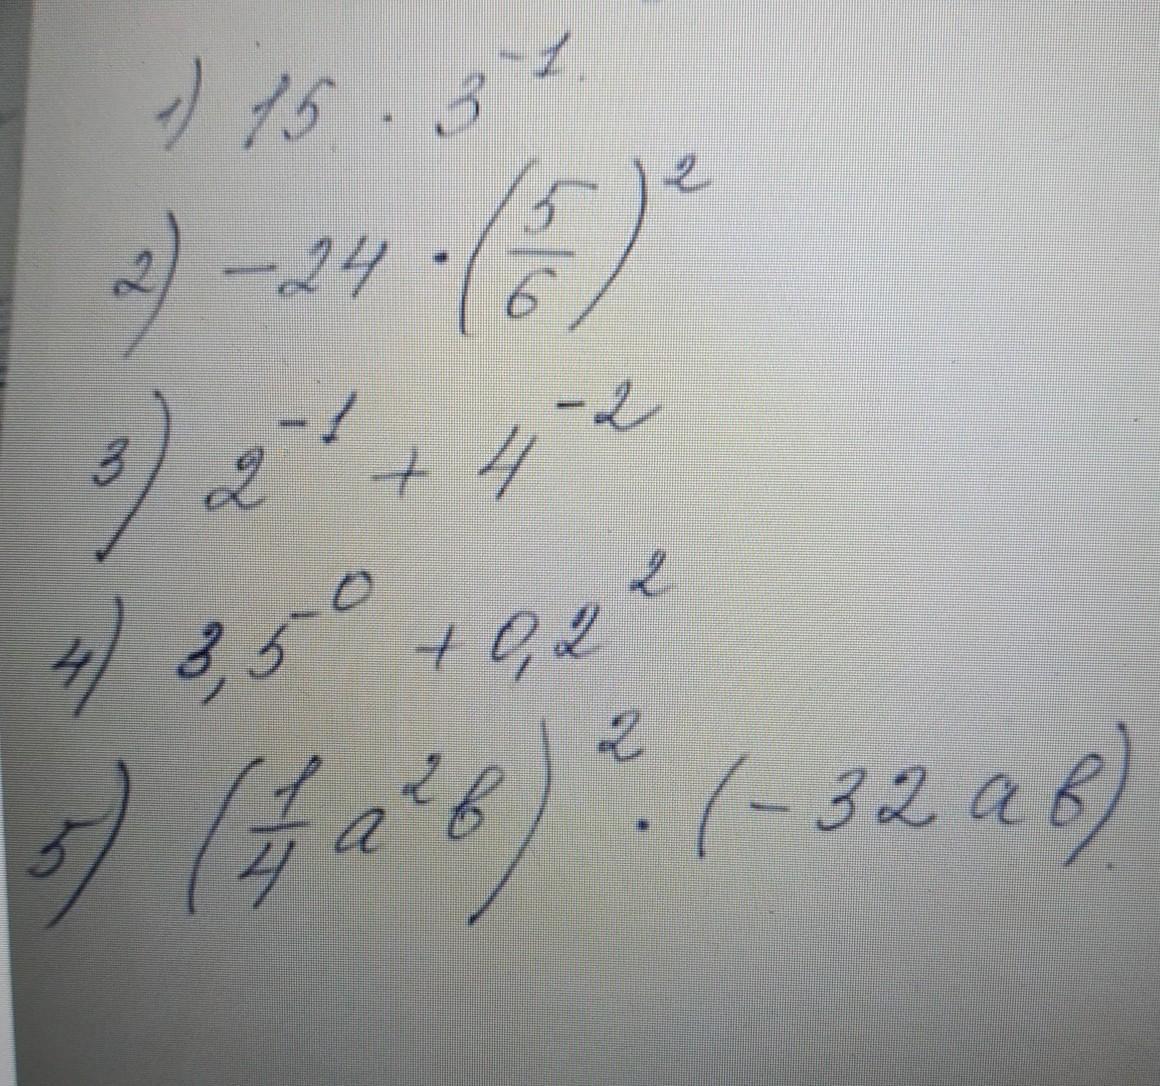 1) 15 · 3⁻¹
2) −24 · (5/6)²
3) 2⁻¹ + 4⁻²
4) 3,5⁻⁰ + 0,2²
5) (1/4 a²b)² · (−32 ab)